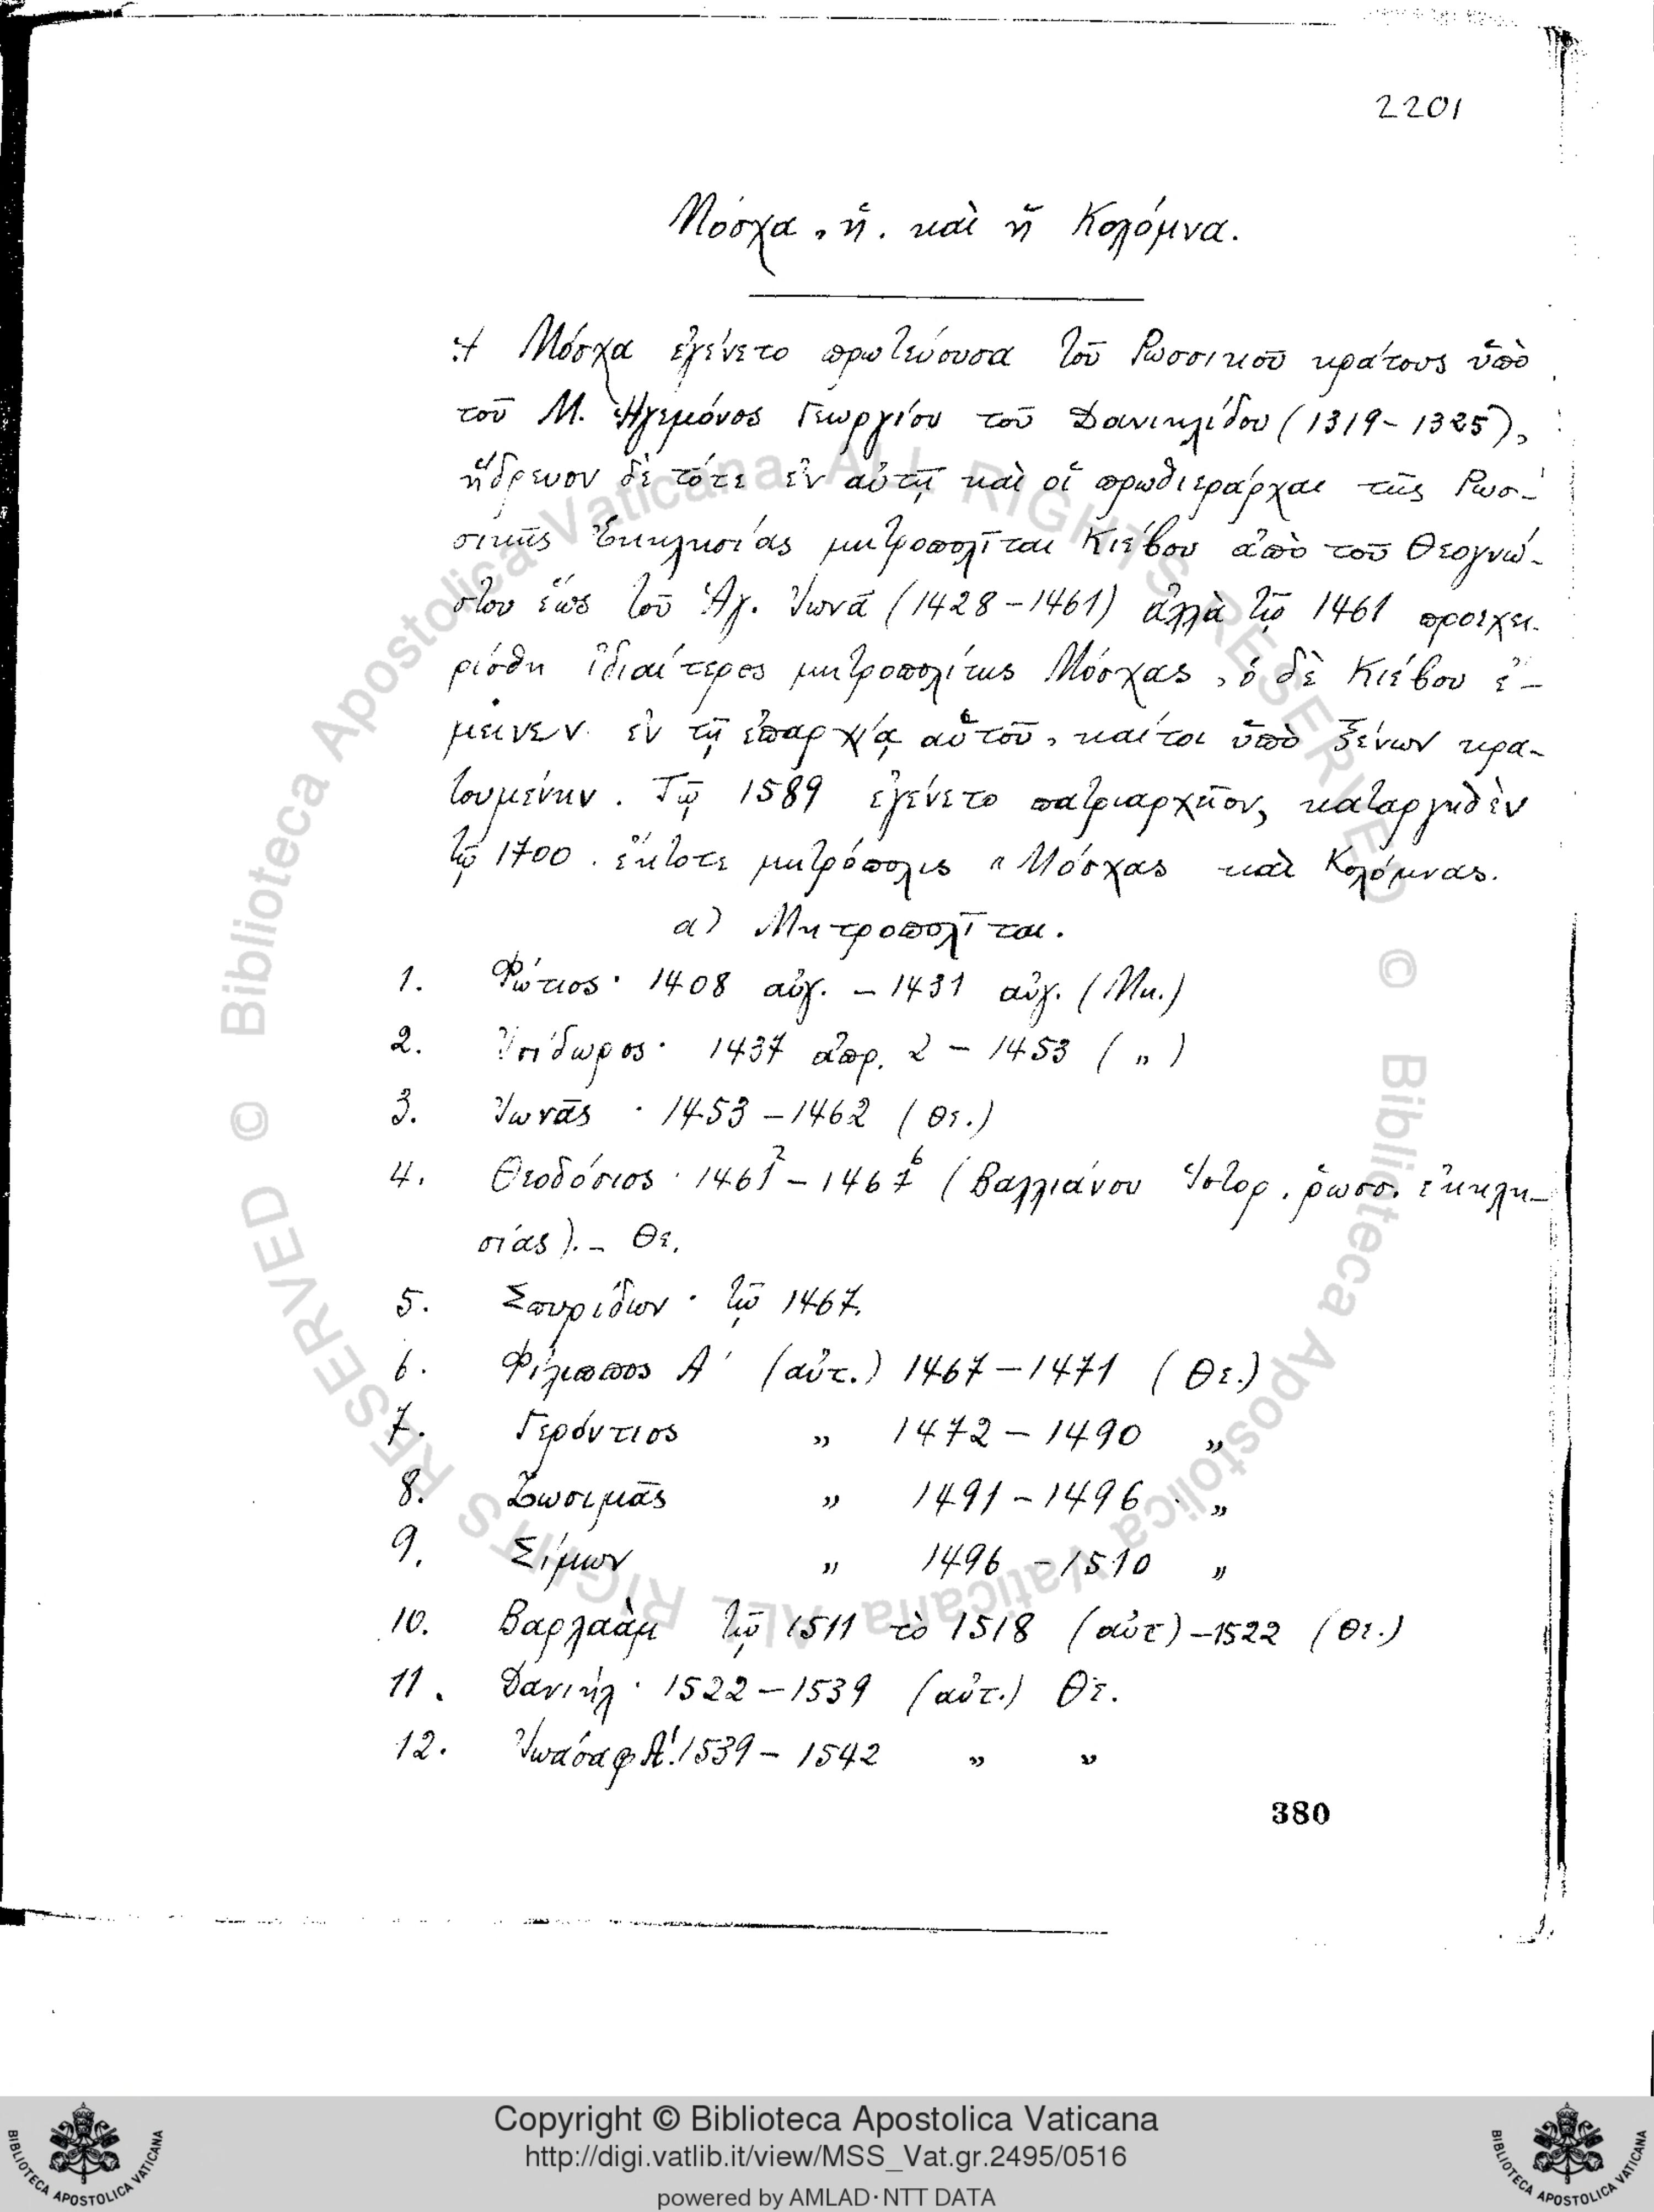 2201
Μόσχα, ἡ. καὶ ἡ Κολόμνα.
Ἡ Μόσχα ἐγένετο πρωτεύουσα τοῦ Ρωσσικοῦ κράτους ὑπὸ
τοῦ Μ. Ἡγεμόνος Γεωργίου τοῦ Δανιηλίδου (1319-1325),
ἥδρευον δὲ τότε ἐν αὐτῇ καὶ οἱ πρωθιεράρχαι τῆς Ρωσ-
σικῆς Ἐκκλησίας μητροπολῖται Κιέβου ἀπὸ τοῦ Θεογνώ-
στου ἕως τοῦ Ἁγ. Ἰωνᾶ (1428-1461) ἀλλὰ τῷ 1461 προεχει-
ρίσθη ἰδιαίτερος μητροπολίτης Μόσχας, ὁ δὲ Κιέβου ἔ-
μεινεν ἐν τῇ ἐπαρχίᾳ αὑτοῦ, καίτοι ὑπὸ ξένων κρα-
τουμένην. Τῷ 1589 ἐγένετο πατριαρχεῖον, καταργηθὲν
τῷ 1700. ἔκτοτε μητρόπολις "Μόσχας καὶ Κολόμνας.
α) Μητροπολῖται.
1. Φώτιος· 1408 αὐγ. - 1431 αὐγ. (Μη.)
2. Ἰσίδωρος· 1437 ἀπρ. 2 - 1453 ( " )
3. Ἰωνᾶς · 1453 - 1462 (Θε.)
4. Θεοδόσιος · 1461² - 1467⁶ (Βαλλιάνου Ἱστορ. ῥωσσ. ἐκκλη-
σίας). - Θε.
5. Σπυρίδων · τῷ 1467.
6. Φίλιππος Α´ (αὐτ.) 1467 - 1471 (Θε.)
7. Γερόντιος " 1472 - 1490 "
8. Ζωσιμᾶς " 1491 - 1496 · "
9. Σίμων " 1496 - 1510 "
10. Βαρλαὰμ τῷ 1511 τὸ 1518 (αὐτ) - 1522 (Θε.)
11. Δανιήλ · 1522 - 1539 (αὐτ.) Θε.
12. Ἰωάσαφ Α´. 1539 - 1542 " "
380
© Biblioteca Apostolica Vaticana ALL RIGHTS RESERVED © Biblioteca Apostolica Vaticana ALL RIGHTS RESERVED
Copyright © Biblioteca Apostolica Vaticana
http://digi.vatlib.it/view/MSS_Vat.gr.2495/0516
powered by AMLAD·NTT DATA
BIBLIOTECA APOSTOLICA VATICANA
BIBLIOTECA APOSTOLICA VATICANA